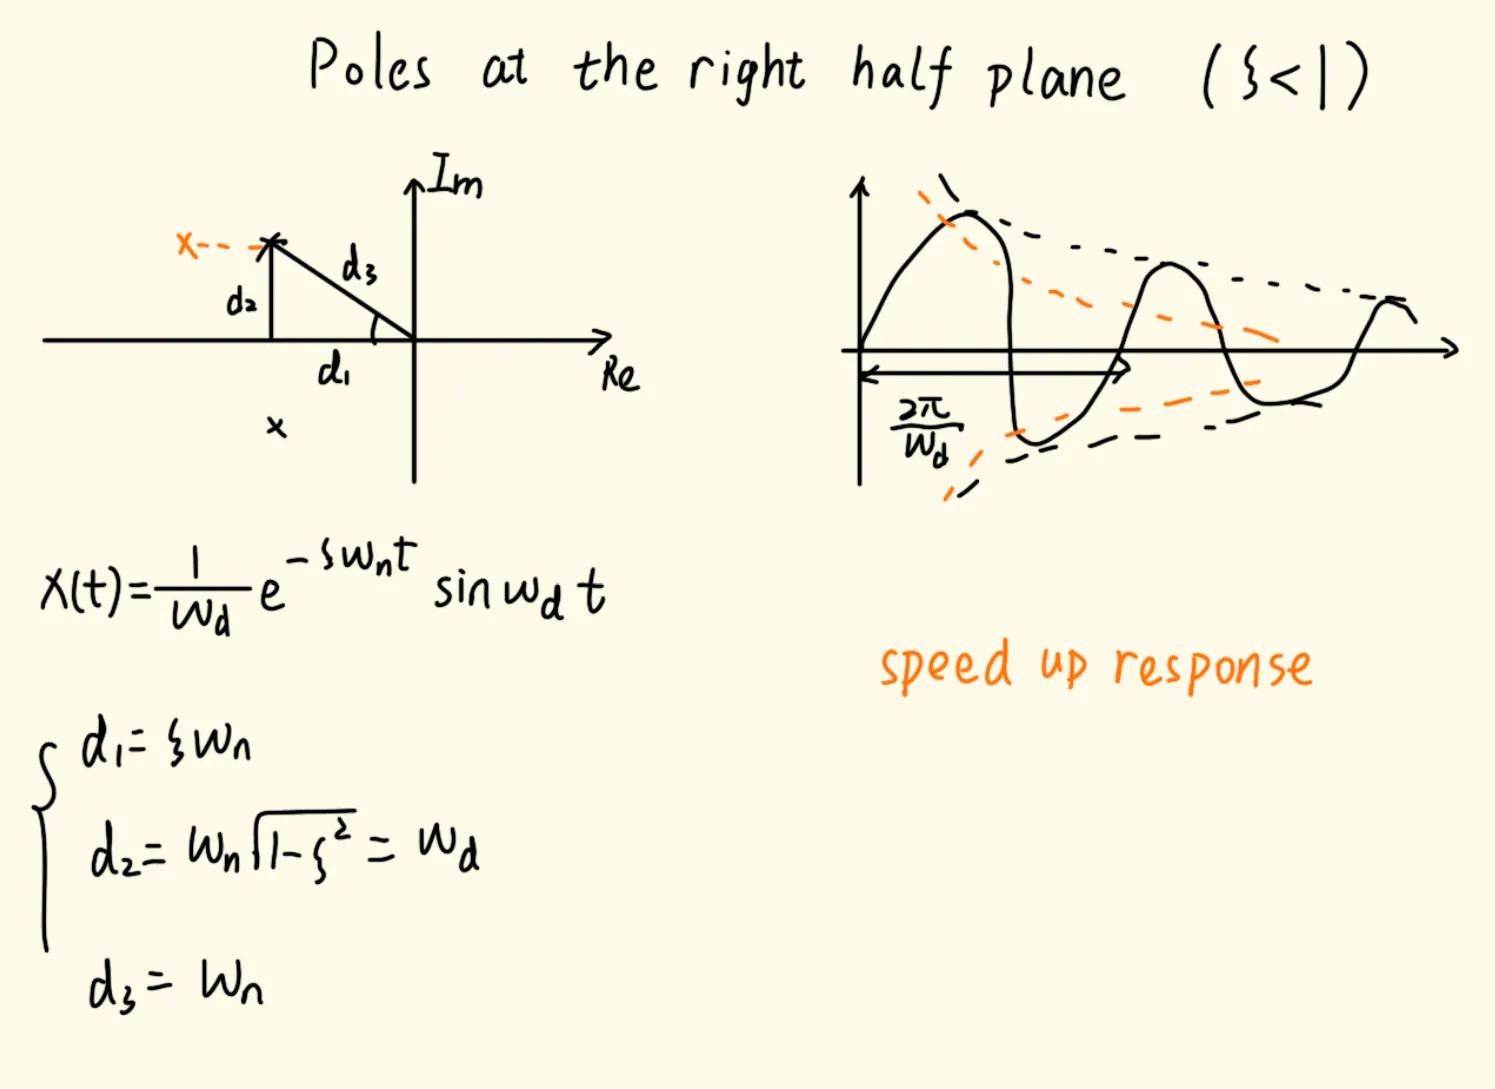 Poles at the right half plane (ξ<1)
Im
x
d₃
d₂
d₁
Re
x
2π/Wd
X(t)=1/Wd e^(-ξWnt) sin Wd t
speed up response
d₁= ξWn
d₂= Wn√(1-ξ²) = Wd
d₃= Wn